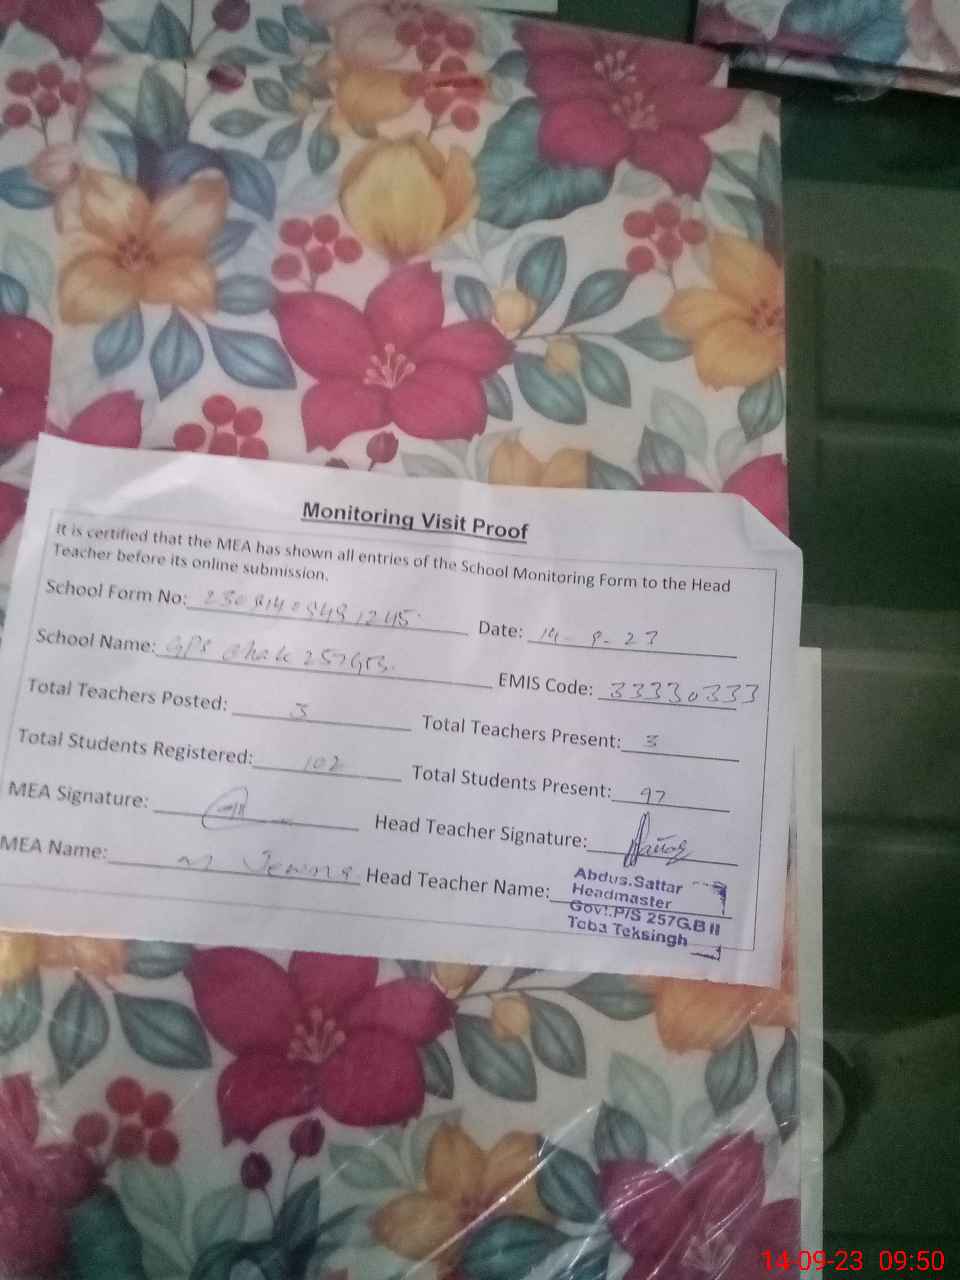 Monitoring Visit Proof
It is certified that the MEA has shown all entries of the School Monitoring Form to the Head
Teacher before its online submission.
School Form No: Date: 14-9-23
School Name: GPS Chak 257GB. EMIS Code: 33330333
Total Teachers Posted: 3 Total Teachers Present: 3
Total Students Registered: 102 Total Students Present: 97
MEA Signature: Head Teacher Signature:
MEA Name: M Head Teacher Name:
Abdus.Sattar
Headmaster
Govt.P/S 257G.B II
Toba Teksingh
14-09-23 09:50